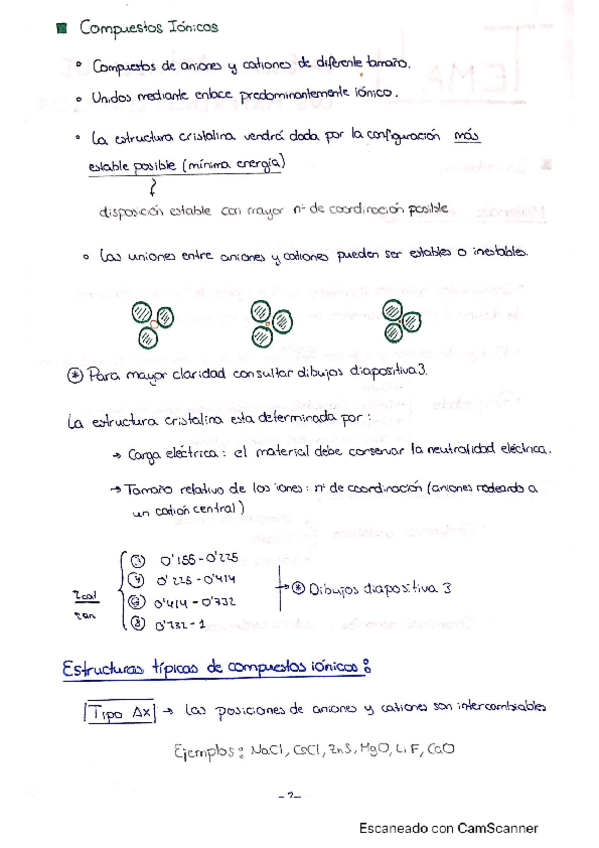 Compuestos Iónicos
° Compuestos de aniones y cationes de diferente tamaño.
° Unidos mediante enlace predominantemente iónico.
° La estructura cristalina vendrá dada por la configuración más
estable posible (mínima energía)
disposición estable con mayor nº de coordinación posible
° Las uniones entre aniones y cationes pueden ser estables o inestables.
* Para mayor claridad consultar dibujos diapositiva 3.
La estructura cristalina esta determinada por:
→ Carga eléctrica: el material debe conservar la neutralidad eléctrica.
→ Tamaño relativo de los iones: nº de coordinación (aniones rodeando a
un catión central)
rcat/ran
3 0'155-0'225
4 0'225-0'414
6 0'414-0'732
8 0'732-1
→ * Dibujos diapositiva 3
Estructuras típicas de compuestos iónicos:
Tipo AX → Las posiciones de aniones y cationes son intercambiables
Ejemplos: NaCl, CsCl, ZnS, MgO, LiF, CaO
-2-
Escaneado con CamScanner